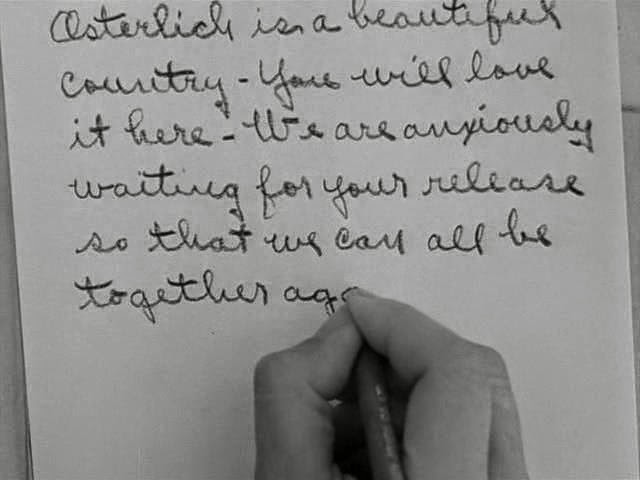 Osterlich is a beautiful
country - You will love
it here - We are anxiously
waiting for your release
so that we can all be
together aga